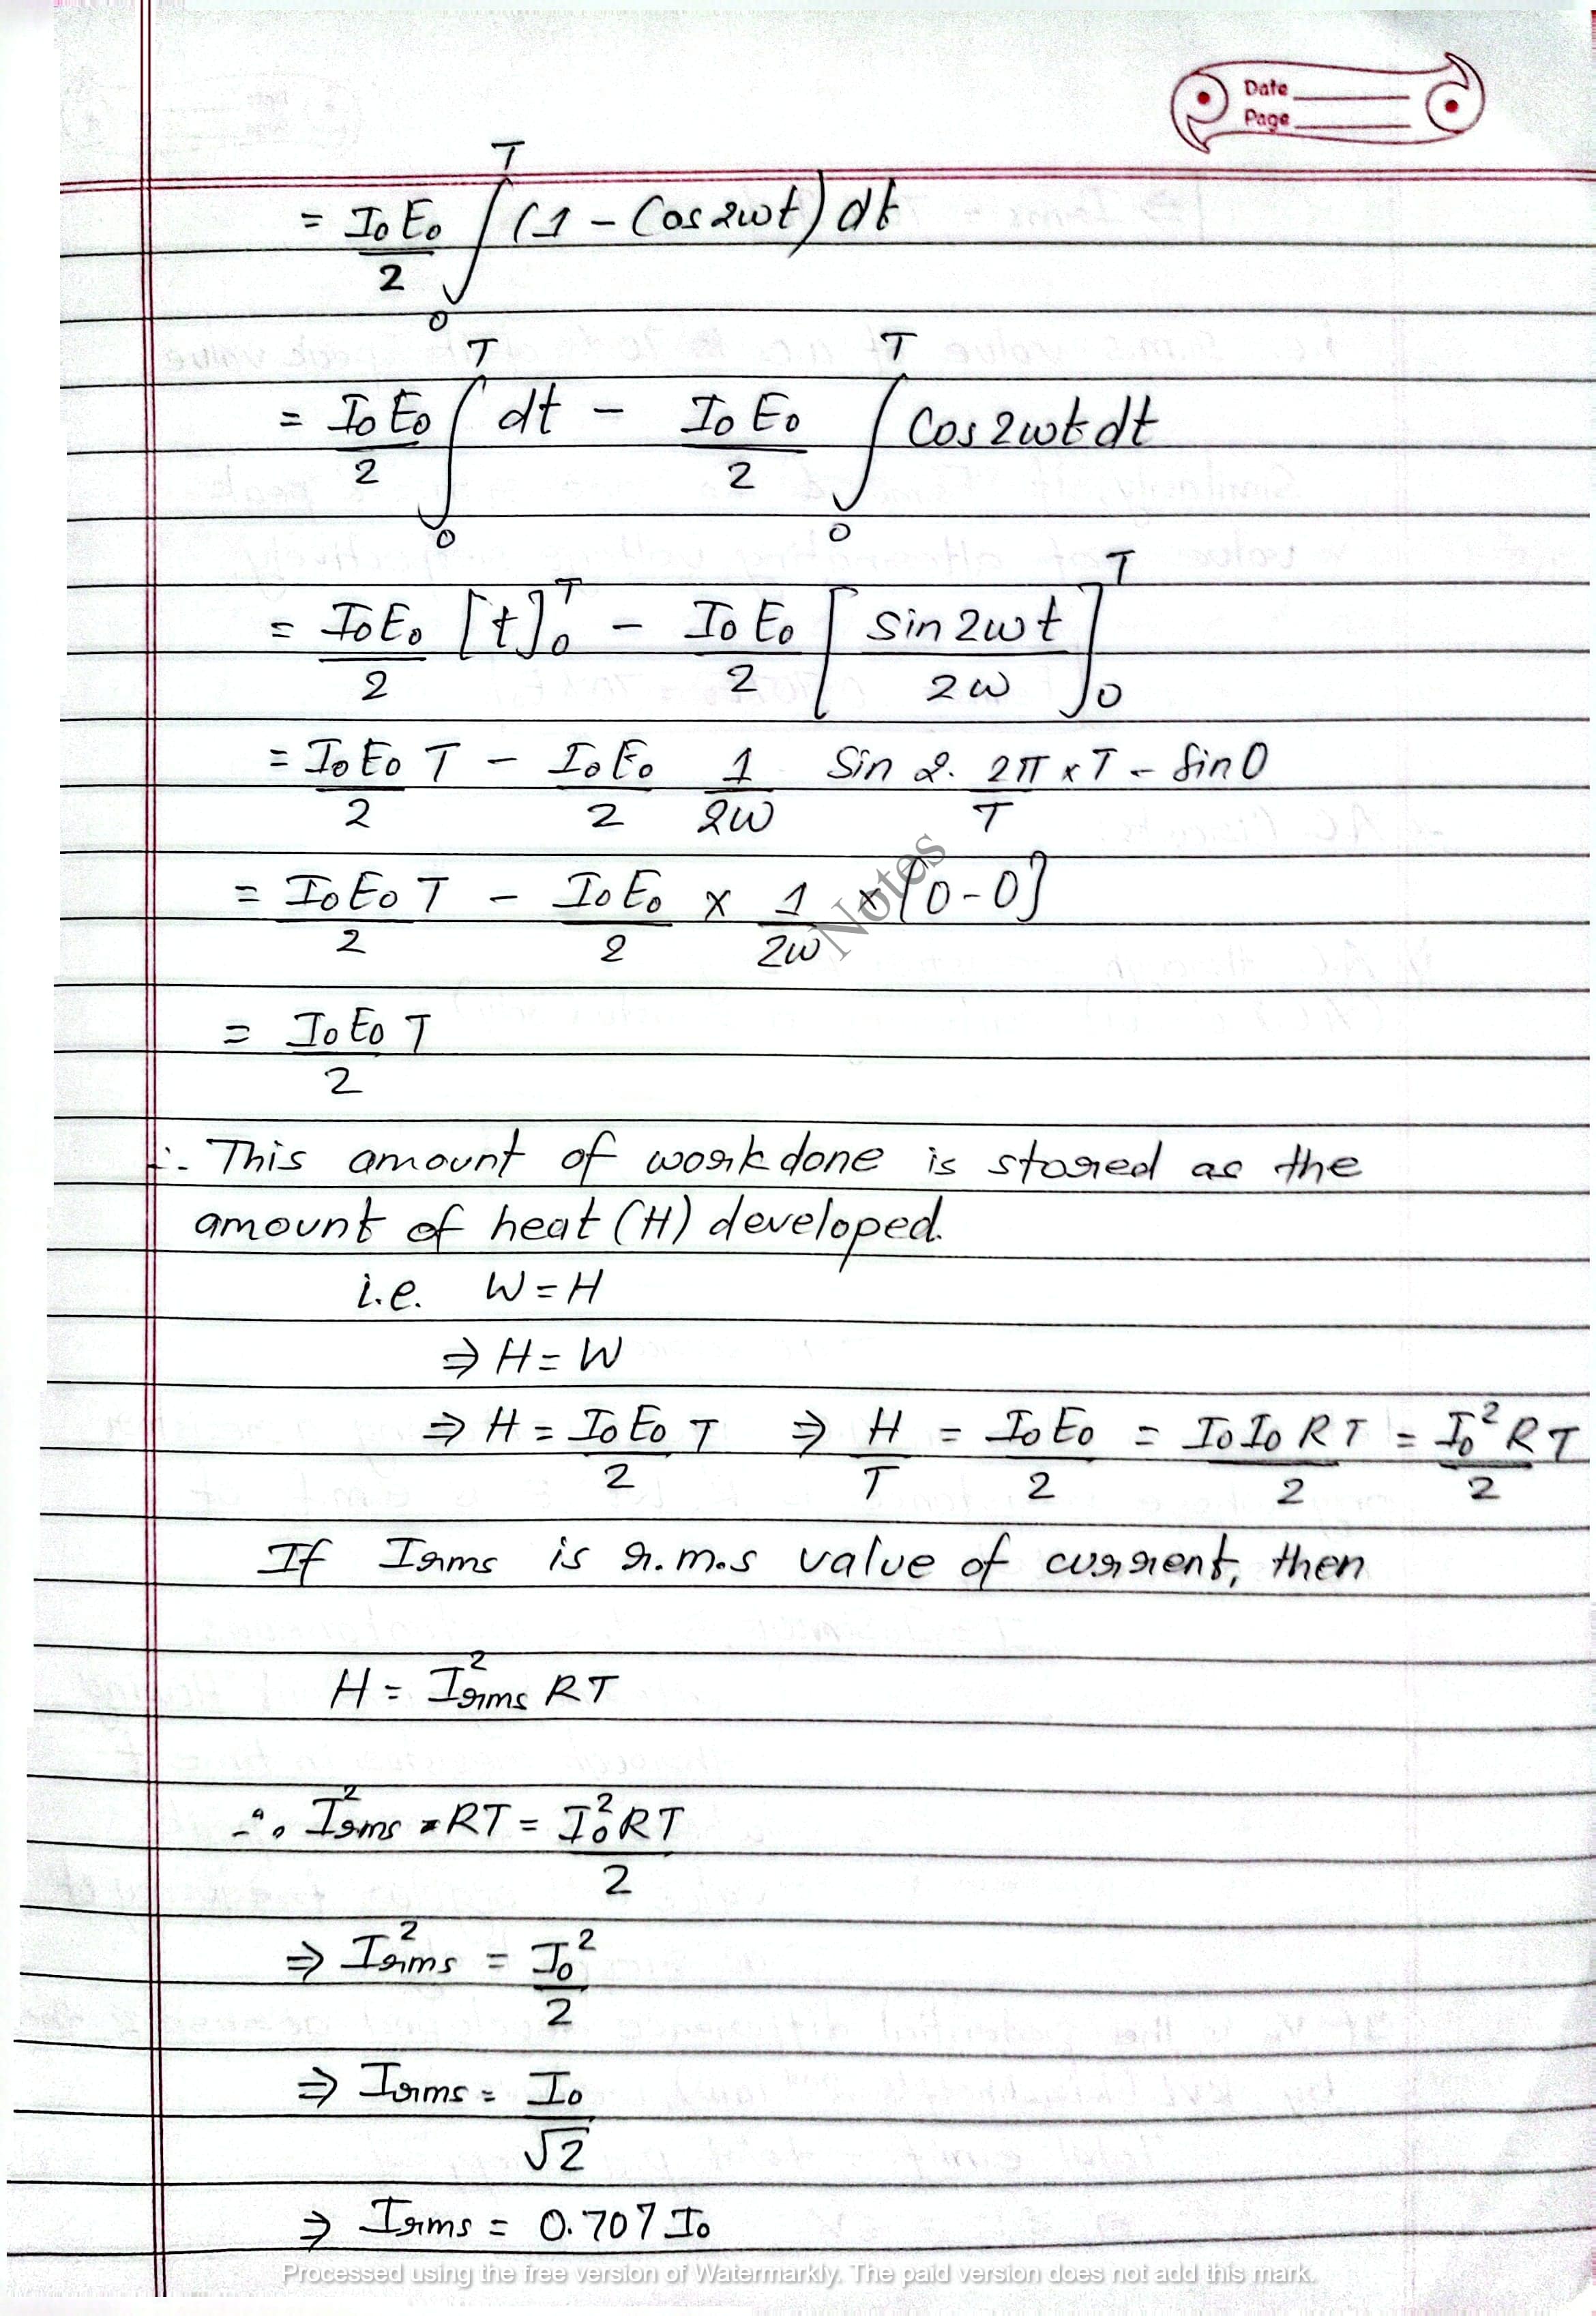 Date
Page
= I₀E₀/2 ∫₀ᵀ (1 - Cos2ωt) dt
= I₀E₀/2 ∫₀ᵀ dt - I₀E₀/2 ∫₀ᵀ Cos2ωt dt
= I₀E₀/2 [t]₀ᵀ - I₀E₀/2 [sin2ωt/2ω]₀ᵀ
= I₀E₀/2 T - I₀E₀/2 1/2ω Sin 2. 2π/T × T - Sin0
= I₀E₀T/2 - I₀E₀/2 × 1/2ω × [0-0]
Notes
= I₀E₀/2 T
∴ This amount of workdone is stored as the
amount of heat (H) developed.
i.e. W = H
⇒ H = W
⇒ H = I₀E₀/2 T ⇒ H/T = I₀E₀/2 = I₀I₀RT/2 = I₀²RT/2
If Irms is r.m.s value of current, then
H = I²rms RT
∴ I²rms = RT = I₀²RT/2
⇒ I²rms = I₀²/2
⇒ Irms = I₀/√2
⇒ Irms = 0.707 I₀
Processed using the free version of Watermarkly. The paid version does not add this mark.